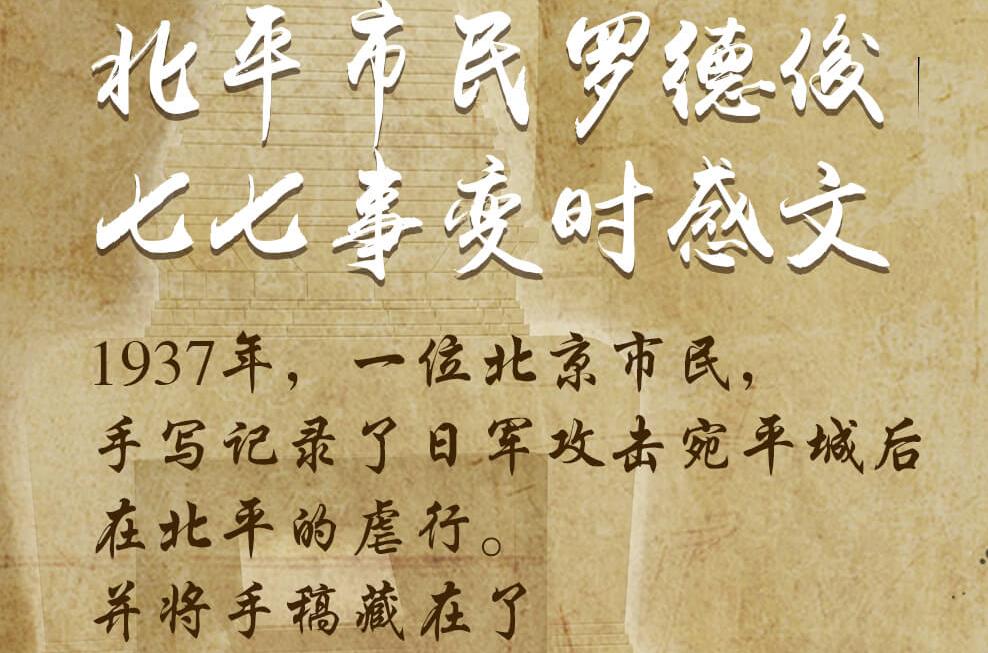 北平市民罗德俊
七七事变时感文
1937年，一位北京市民，
手写记录了日军攻击宛平城后
在北平的虐行。
并将手稿藏在了